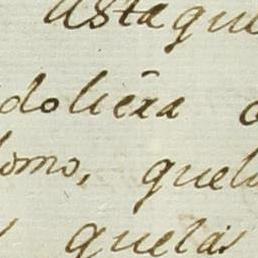 asta que
doliera
lomo, quela
quelas